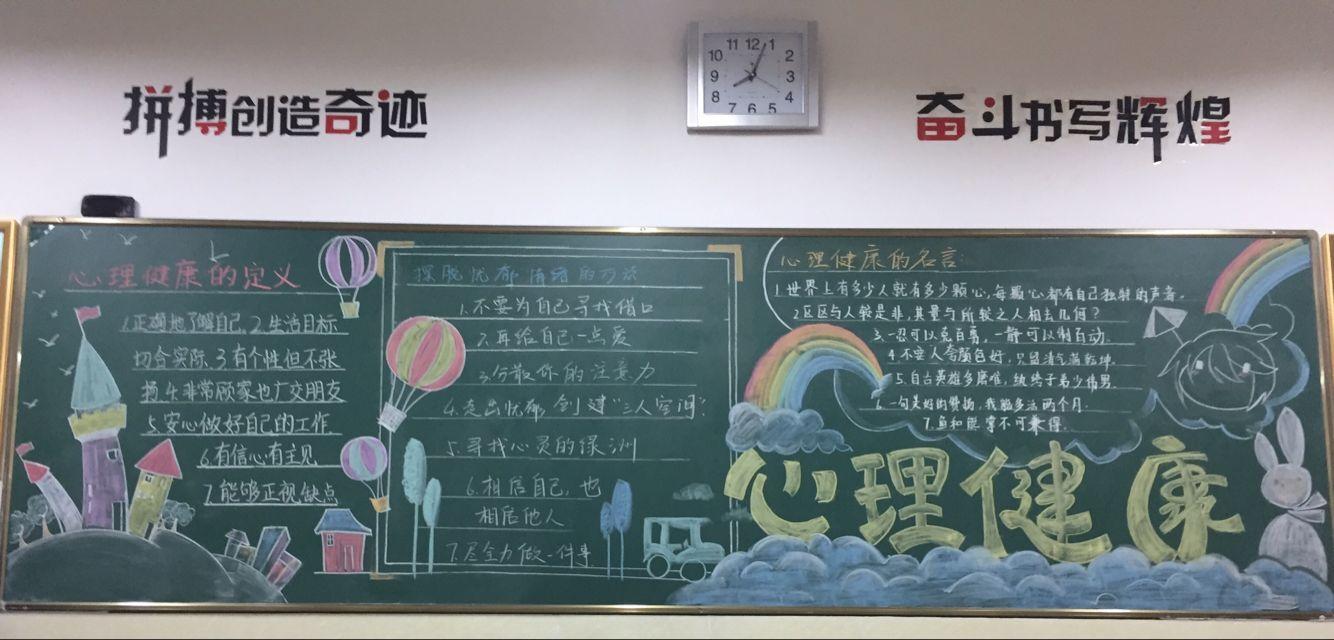 拼搏创造奇迹
11 12 1
10 2
9 3
8 4
7 6 5
奋斗书写辉煌
心理健康的定义
1.正确地了解自己.2.生活目标
切合实际.3.有个性但不张
扬.4.非常顾家也广交朋友
5.安心做好自己的工作
6.有信心有主见
7.能够正视缺点
摆脱忧郁情绪的方法
1.不要为自己寻找借口
2.再给自己一点爱
3.分散你的注意力
4.走出忧郁,创建"三人空间"
5.寻找心灵的绿洲
6.相信自己,也
相信他人
7.尽全力做一件事
心理健康的名言:
1.世界上有多少人就有多少颗心,每颗心都有自己独特的声音。
2.区区与人较是非,其量与所较之人相去几何?
3.一忍可以克百勇,一静可以制百动。
4.不要人夸颜色好,只留清气满乾坤.
5.自古英雄多磨难,纨绔子弟少伟男.
6.一句美好的赞扬,我能多活两个月.
7.鱼和熊掌不可兼得.
心理健康